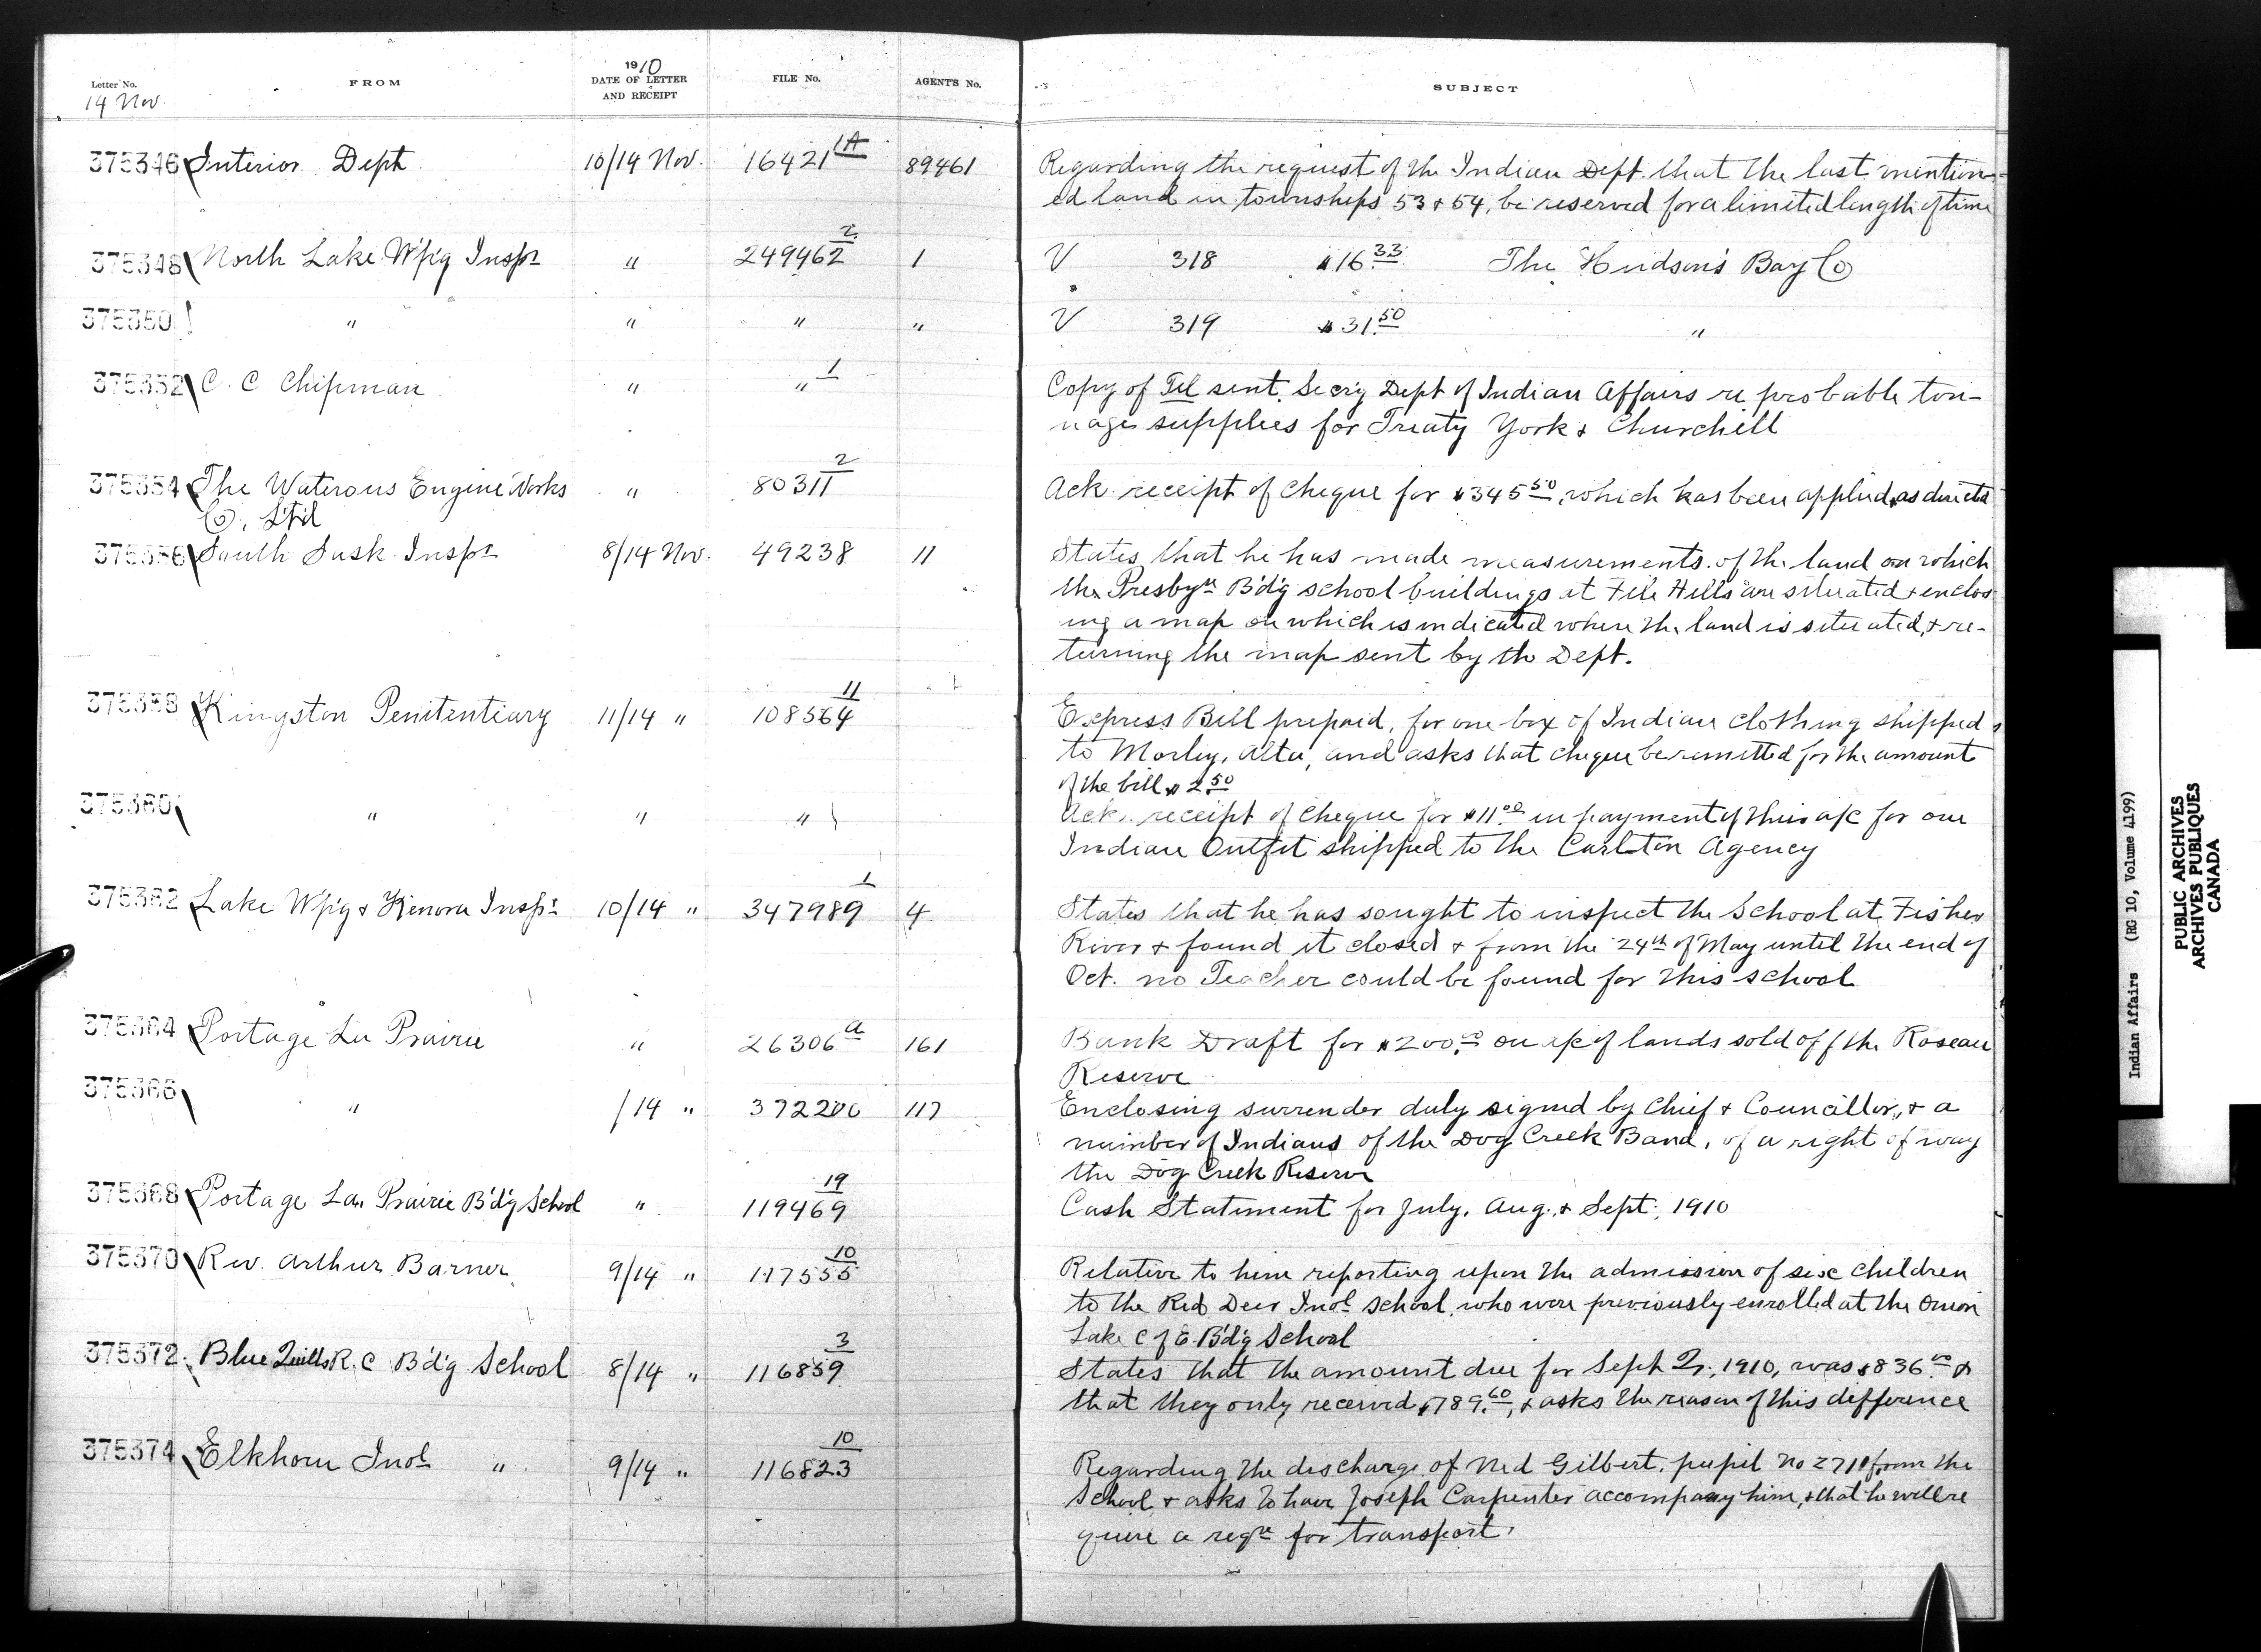 Letter No. FROM 1910 DATE OF LETTER AND RECEIPT FILE No. AGENT'S No. SUBJECT
14 Nov.
375346 Interior Dept. 10/14 Nov. 16421 1A 89461 Regarding the request of the Indian Dept. that the last mention-
ed land in townships 53 & 54, be reserved for a limited length of time
375348 North Lake W'p'g Inspr " 249462 2 1 V 318 $16.33 The Hudson's Bay Co
375350 " " " " V 319 $31.50 "
375352 C. C Chipman " " 1 Copy of Tel sent Secr'y Dept of Indian Affairs re probable ton-
nage supplies for Treaty York & Churchill
375354 The Waterous Engine Works " 80311 2 Ack. receipt of cheque for $345.50, which has been applied as directed
Co, Lt'd
375356 South Sask. Inspr 8/14 Nov. 49238 11 States that he has made measurements of the land on which
the Presbyn B'd'g school buildings at File Hills are situated & enclos-
ing a map on which is indicated where the land is situated, & re-
turning the map sent by the Dept.
375358 Kingston Penitentiary 11/14 " 108564 11 Express Bill prepaid, for one box of Indian clothing shipped
to Morley, Alta, and asks that cheque be remitted for the amount
of the bill $2.50
375360 " " " Ack. receipt of cheque for $11.00 in payment of their a/c for one
Indian Outfit shipped to the Carlton Agency
375362 Lake W'p'g & Kenora Inspr 10/14 " 347989 1 4 States that he has sought to inspect the School at Fisher
River & found it closed & from the 24th of May until the end of
Oct. no Teacher could be found for this school
375364 Portage La Prairie " 26306 a 161 Bank Draft for $200.00 on a/c of lands sold off the Roseau
Reserve
375366 " /14 " 372200 117 Enclosing surrender duly signed by Chief & Councillor, & a
number of Indians of the Dog Creek Band, of a right of way
the Dog Creek Reserve
375368 Portage La Prairie B'd'g School " 119469 19 Cash Statement for July, Aug. & Sept., 1910
375370 Rev. Arthur Barner 9/14 " 117555 10 Relative to him reporting upon the admission of six children
to the Red Deer Indl School, who were previously enrolled at the Onion
Lake C of E B'd'g School
375372 Blue Quills R. C B'd'g School 8/14 " 116859 3 States that the amount due for Sept Q., 1910, was $836.00 &
that they only received $789.60, & asks the reason of this difference
375374 Elkhorn Indl " 9/14 " 116823 10 Regarding the discharge of Ned Gilbert, pupil No 271 from the
School & asks to have Joseph Carpenter accompany him, & that he will re
quire a reqn for transport.
Indian Affairs (RG 10, Volume 4199)
PUBLIC ARCHIVES
ARCHIVES PUBLIQUES
CANADA